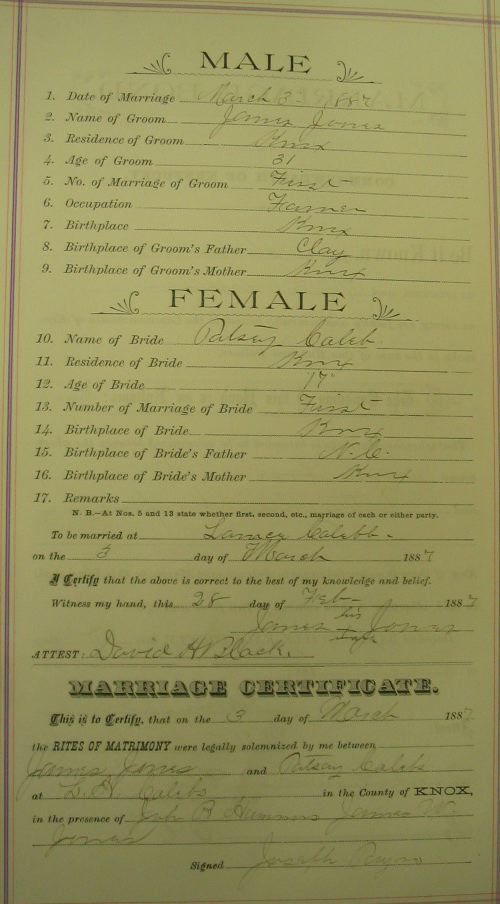 MALE
1. Date of Marriage March 3 - 1887
2. Name of Groom James Jones
3. Residence of Groom Knox
4. Age of Groom 31
5. No. of Marriage of Groom First
6. Occupation Farmer
7. Birthplace Knox
8. Birthplace of Groom's Father Clay
9. Birthplace of Groom's Mother Knox
FEMALE
10. Name of Bride Patsey Caleb
11. Residence of Bride Knox
12. Age of Bride 17
13. Number of Marriage of Bride First
14. Birthplace of Bride Knox
15. Birthplace of Bride's Father N. C.
16. Birthplace of Bride's Mother Knox
17. Remarks
N. B.—At Nos. 5 and 13 state whether first, second, etc., marriage of each or either party.
To be married at Calebb -
on the 3 day of March 1887
I Certify that the above is correct to the best of my knowledge and belief.
Witness my hand, this 28 day of Feb- 1887
James his Jones
ATTEST: David H Black.
MARRIAGE CERTIFICATE.
This is to Certify, that on the 3 day of March 1887
the RITES OF MATRIMONY were legally solemnized by me between
James Jones and Patsey Caleb
at Calebs in the County of KNOX,
in the presence of James W.
Jones
Signed Joseph